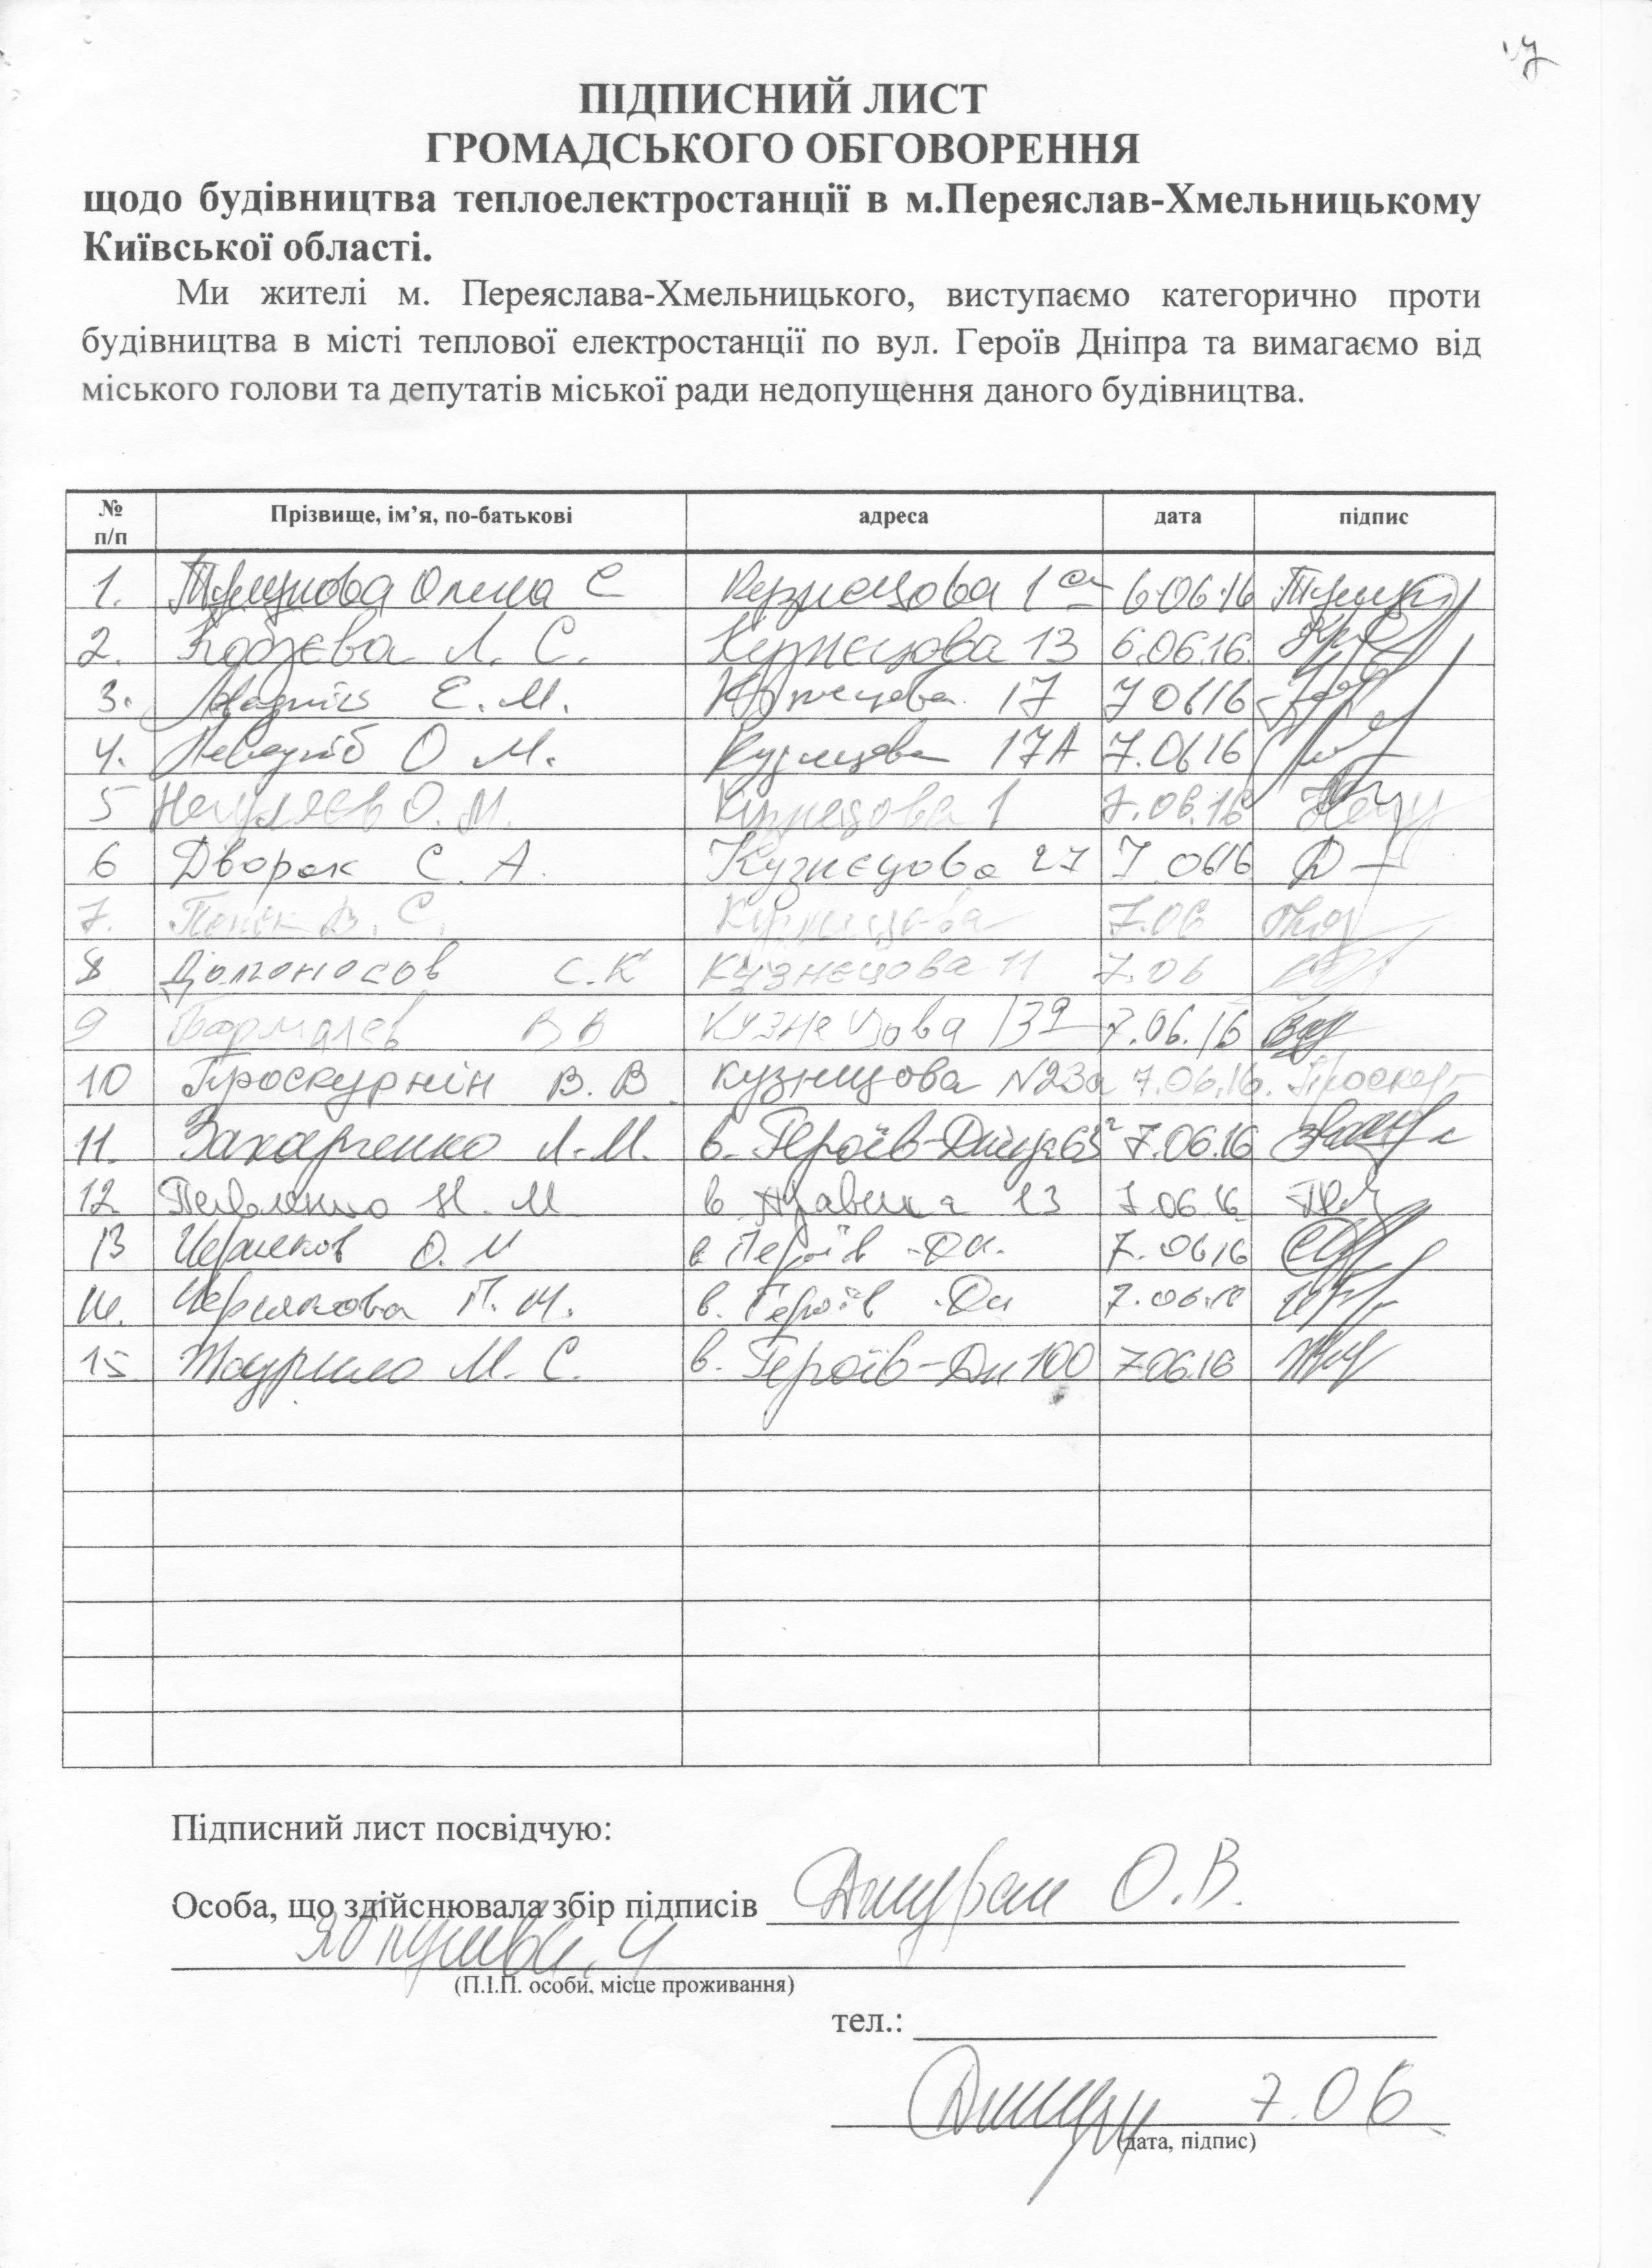 ПІДПИСНИЙ ЛИСТ
ГРОМАДСЬКОГО ОБГОВОРЕННЯ
щодо будівництва теплоелектростанції в м.Переяслав-Хмельницькому
Київської області.
Ми жителі м. Переяслава-Хмельницького, виступаємо категорично проти
будівництва в місті теплової електростанції по вул. Героїв Дніпра та вимагаємо від
міського голови та депутатів міської ради недопущення даного будівництва.
№ п/п Прізвище, ім’я, по-батькові адреса дата підпис
1. Олена С Кузнецова 1 6.06.16
2. Кобзєва Л. С. Кузнєцова 13 6.06.16.
3. Е. М. Кузнецова 17 7 06 16
4. О М. Кузнцова 17А 7.06 16
5 О. М. Кузнецова 1 7.06.16
6 Дворак С. А. Кузнєцова 27 7 06 16
7. В. С. Кузнецова 7.06
8 Долгоносов С.К Кузнєцова 11 7.06
9 Бармалєв В В Кузнецова 7.06.16
10 Проскурнін В. В. Кузнецова N23а 7.06.16.
11. Захарченко Л.М. в. Героїв-Дніпра 7.06.16
12. Н. М 13 7.06.16
13 О. М в Героїв -Дн. 7. 06 16
14. Чернякова П. М. в. Героїв -Дн 7.06.16
15 М. С. в. Героїв-Дн 100 7.06.16
Підписний лист посвідчую:
Особа, що здійснювала збір підписів О.В.
4
(П.І.П. особи, місце проживання)
тел.:
7.06
(дата, підпис)